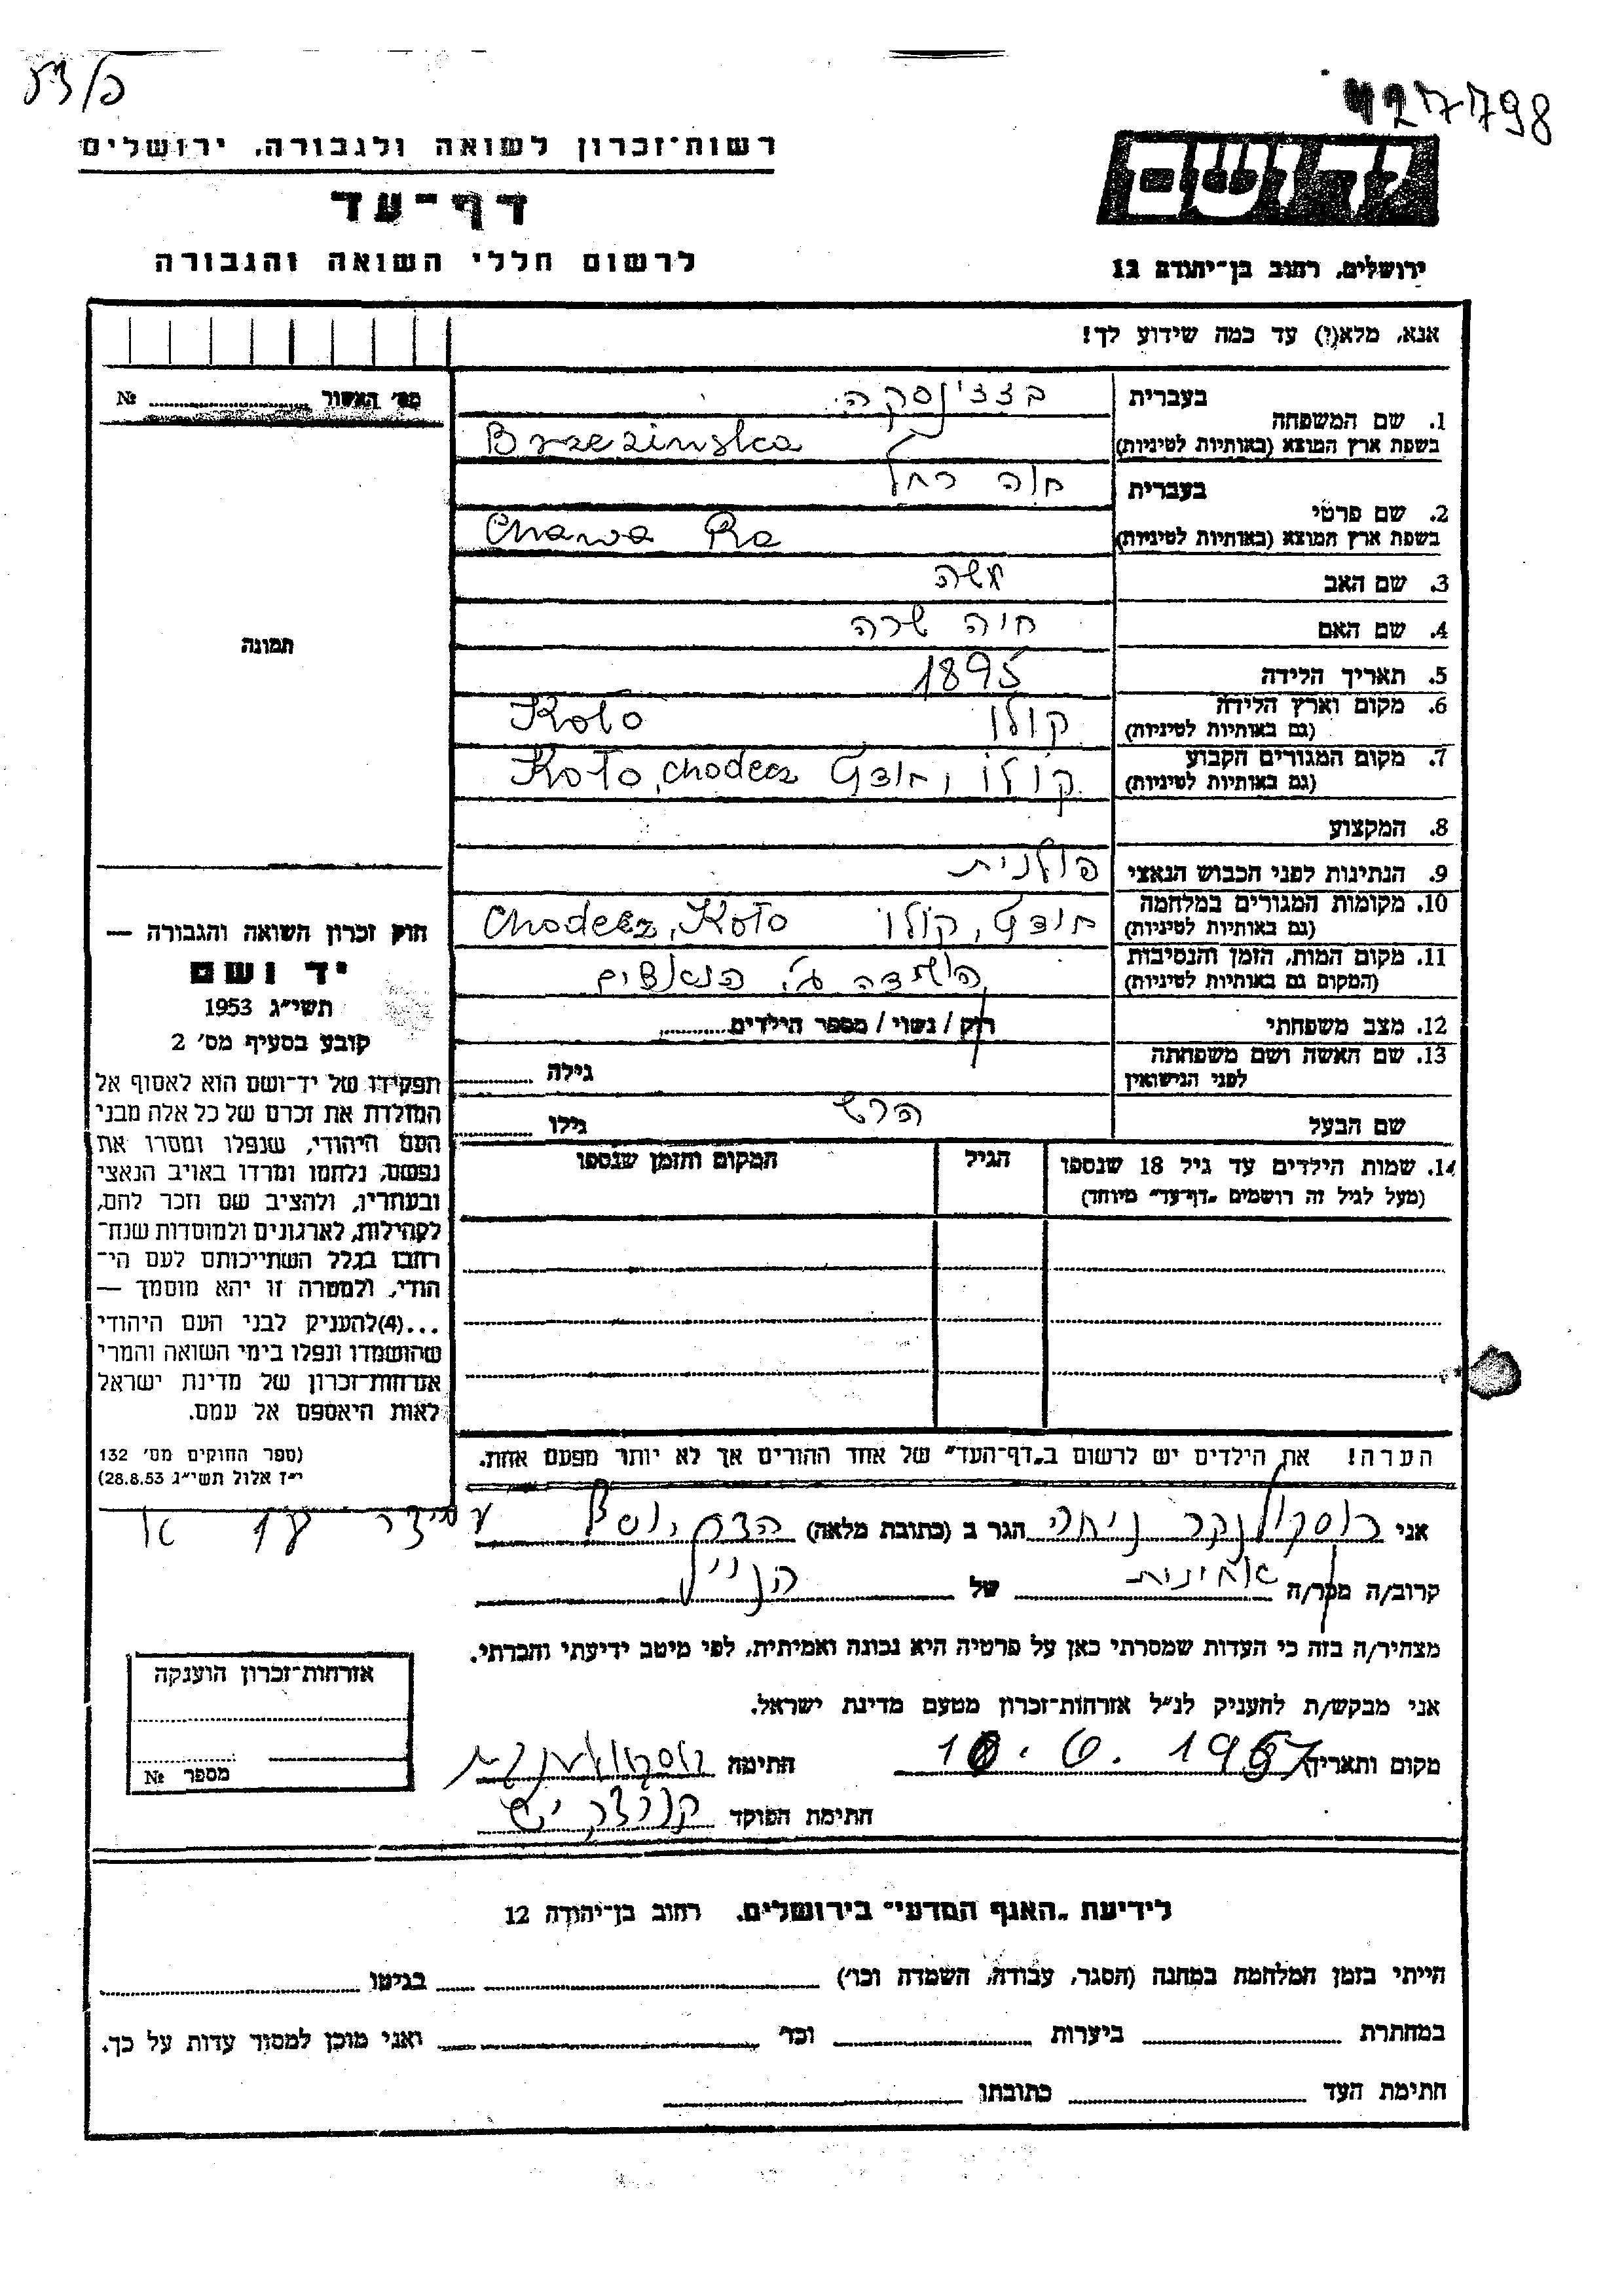 427798
רשות־זכרון לשואה ולגבורה, ירושלים
דף־עד
לרשום חללי השואה והגבורה
יד ושם
ירושלים, רחוב בן־יהודה 12
אנא, מלא(י) עד כמה שידוע לך!
מס׳ האשור № 
1. שם המשפחה
בעברית
בז'ז'ינסקה
בשפת ארץ המוצא (באותיות לטיניות) Brzezinska
2. שם פרטי
בעברית חוה רחל
בשפת ארץ המוצא (באותיות לטיניות) Chawa Ra
3. שם האב משה
4. שם האם חיה שרה
5. תאריך הלידה 1895
6. מקום וארץ הלידה (גם באותיות לטיניות) קולו Koło
7. מקום המגורים הקבוע (גם באותיות לטיניות) קולו, חודץ Koło, Chodecz
8. המקצוע
9. הנתינות לפני הכבוש הנאצי פולנית
10. מקומות המגורים במלחמה (גם באותיות לטיניות) חודץ, קולו Chodecz, Koło
11. מקום המות, הזמן והנסיבות (המקום גם באותיות לטיניות) הושמדה ע"י הנאצים
12. מצב משפחתי רוק / נשוי / מספר הילדים
13. שם האשה ושם משפחתה לפני הנישואין גילה
שם הבעל הרש גילו
14. שמות הילדים עד גיל 18 שנספו
(מעל לגיל זה רושמים „דף־עד” מיוחד)
הגיל
המקום והזמן שנספו
תמונה
חוק זכרון השואה והגבורה —
יד ושם
תשי״ג 1953
קובע בסעיף מס׳ 2
תפקידו של יד־ושם הוא לאסוף אל
המולדת את זכרם של כל אלה מבני
העם היהודי, שנפלו ומסרו את
נפשם, נלחמו ומרדו באויב הנאצי
ובעוזריו, ולהציב שם וזכר להם,
לקהילות, לארגונים ולמוסדות שנח־
רבו בגלל השתייכותם לעם הי־
הודי, ולמטרה זו יהא מוסמך —
...(4)להעניק לבני העם היהודי
שהושמדו ונפלו בימי השואה והמרי
אזרחות־זכרון של מדינת ישראל
לאות היאספם אל עמם.
(ספר החוקים מס׳ 132
י״ז אלול תשי״ג 28.8.53)
הערה! את הילדים יש לרשום ב„דף־העד” של אחד ההורים אך לא יותר מפעם אחת.
אני הגר ב (כתובת מלאה)
קרוב/ה מכר/ה אחינית של הנ"ל
מצהיר/ה בזה כי העדות שמסרתי כאן על פרטיה היא נכונה ואמיתית, לפי מיטב ידיעתי והכרתי.
אני מבקש/ת להעניק לנ״ל אזרחות־זכרון מטעם מדינת ישראל.
מקום ותאריך חתימה
חתימת הפוקד
אזרחות־זכרון הוענקה
מספר №
לידיעת „האגף המדעי” בירושלים, רחוב בן־יהודה 12
הייתי בזמן המלחמה במחנה (הסגר, עבודה, השמדה וכו׳) בגיטו
במחתרת ביערות וכו׳ ואני מוכן למסור עדות על כך.
חתימת העד כתובתו